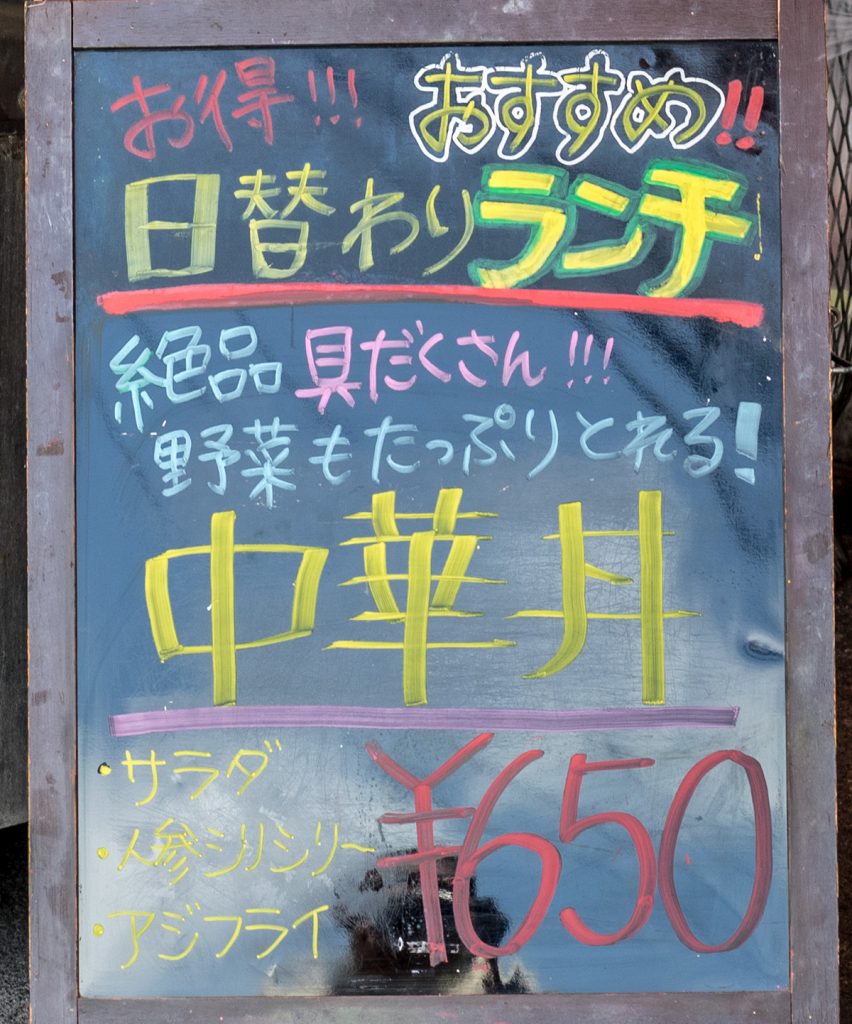 お得!!! おすすめ!!
日替わりランチ
絶品 具だくさん!!!
野菜もたっぷりとれる!
中華丼
・サラダ
・人参シリシリー
・アジフライ
¥650